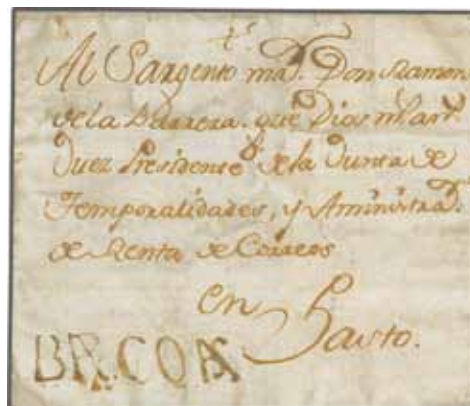 Al Sargento mar. Don Ramon
de la Barrera. que Dios m. as.
Juez Presidente de la Junta de
Temporalidades, y Aministrad.
de Renta de Correos
en
Pasto.
BR.COAS